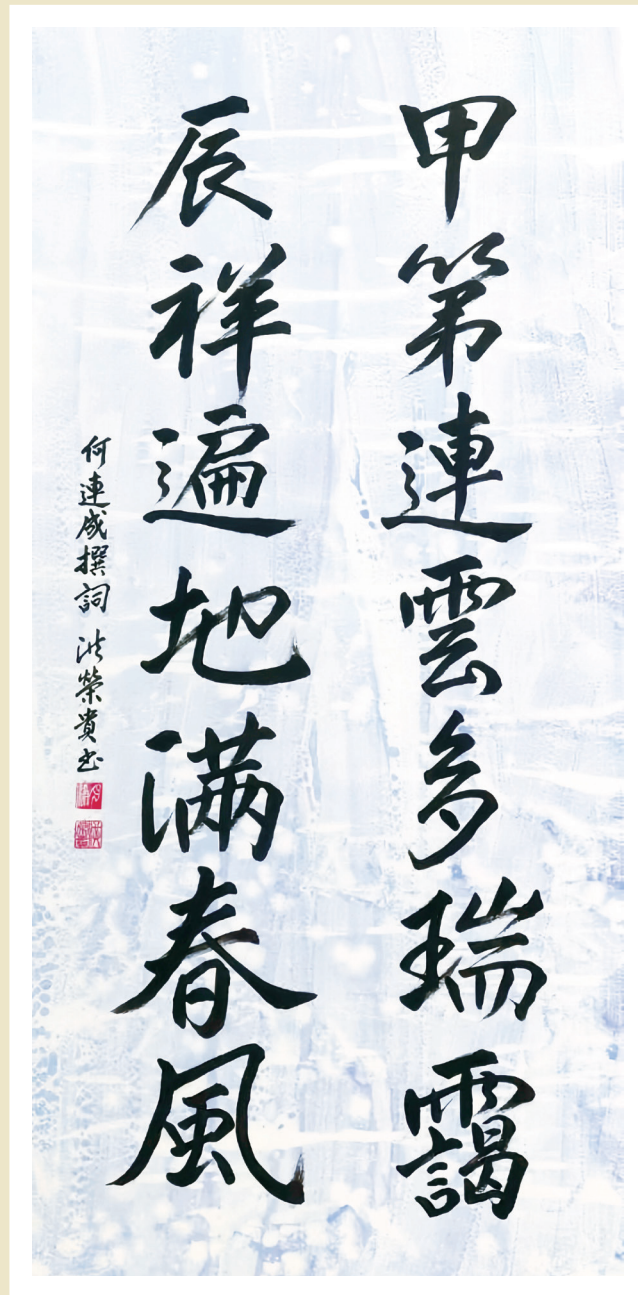 甲第連雲多瑞靄
辰祥遍地滿春風
何連成撰詞 洪榮貴书